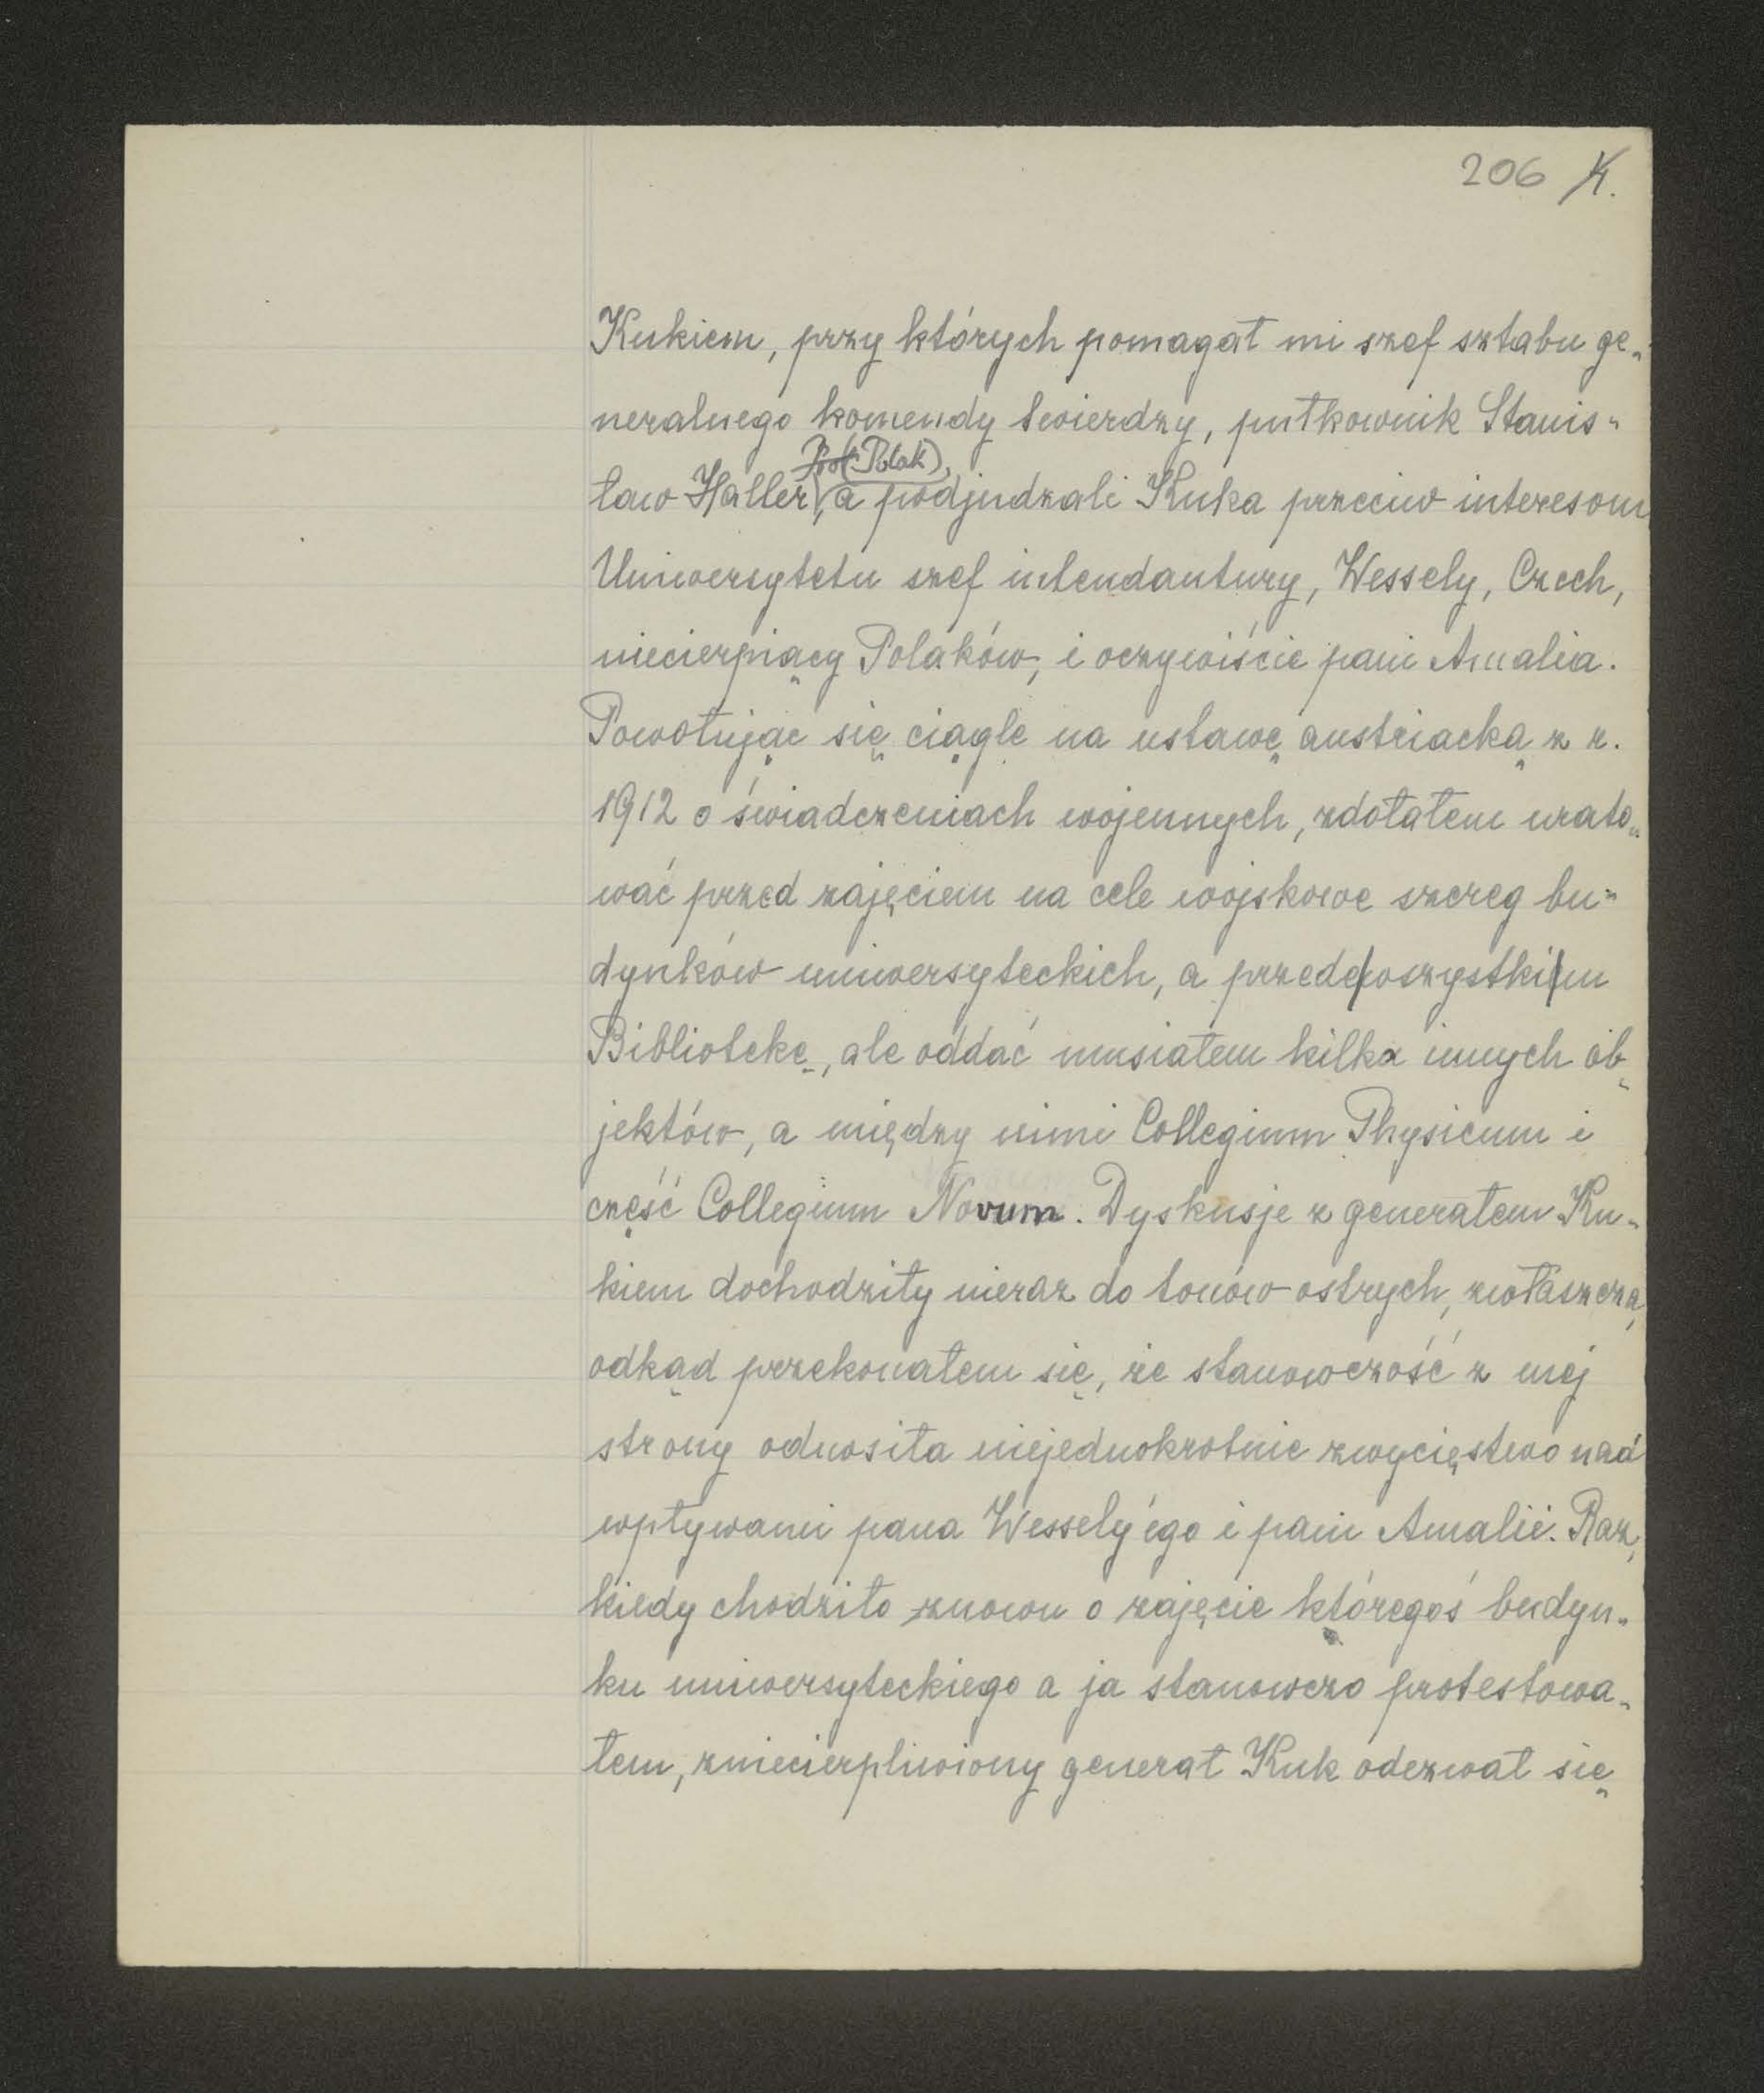 206 K.
Kukiem, przy których pomagał mi szef sztabu ge-
neralnego komendy twierdzy, pułkownik Stanis-
(Polak),
ław Haller, a podjudzali Kuka przeciw interesom
Uniwersytetu szef intendantury, Wessely, Czech,
niecierpiący Polaków, i oczywiście pani Amalia.
Powołując się ciągle na ustawę austriacką z r.
1912 o świadczeniach wojennych, zdołałem urato-
wać przed zajęciem na cele wojskowe szereg bu-
dynków uniwersyteckich, a przede wszystkim
Bibliotekę, ale oddać musiałem kilka innych ob-
jektów, a między nimi Collegium Physicum i
część Collegium Novum. Dyskusje z generałem Ku-
kiem dochodziły nieraz do tonów ostrych, zwłaszcza,
odkąd przekonałem się, że stanowczość z mej
strony odnosiła niejednokrotnie zwycięstwo nad
wpływami pana Wessely'ego i pani Amalii. Raz,
kiedy chodziło znowu o zajęcie któregoś budyn-
ku uniwersyteckiego a ja stanowczo protestowa-
łem, zniecierpliwiony generał Kuk odezwał się